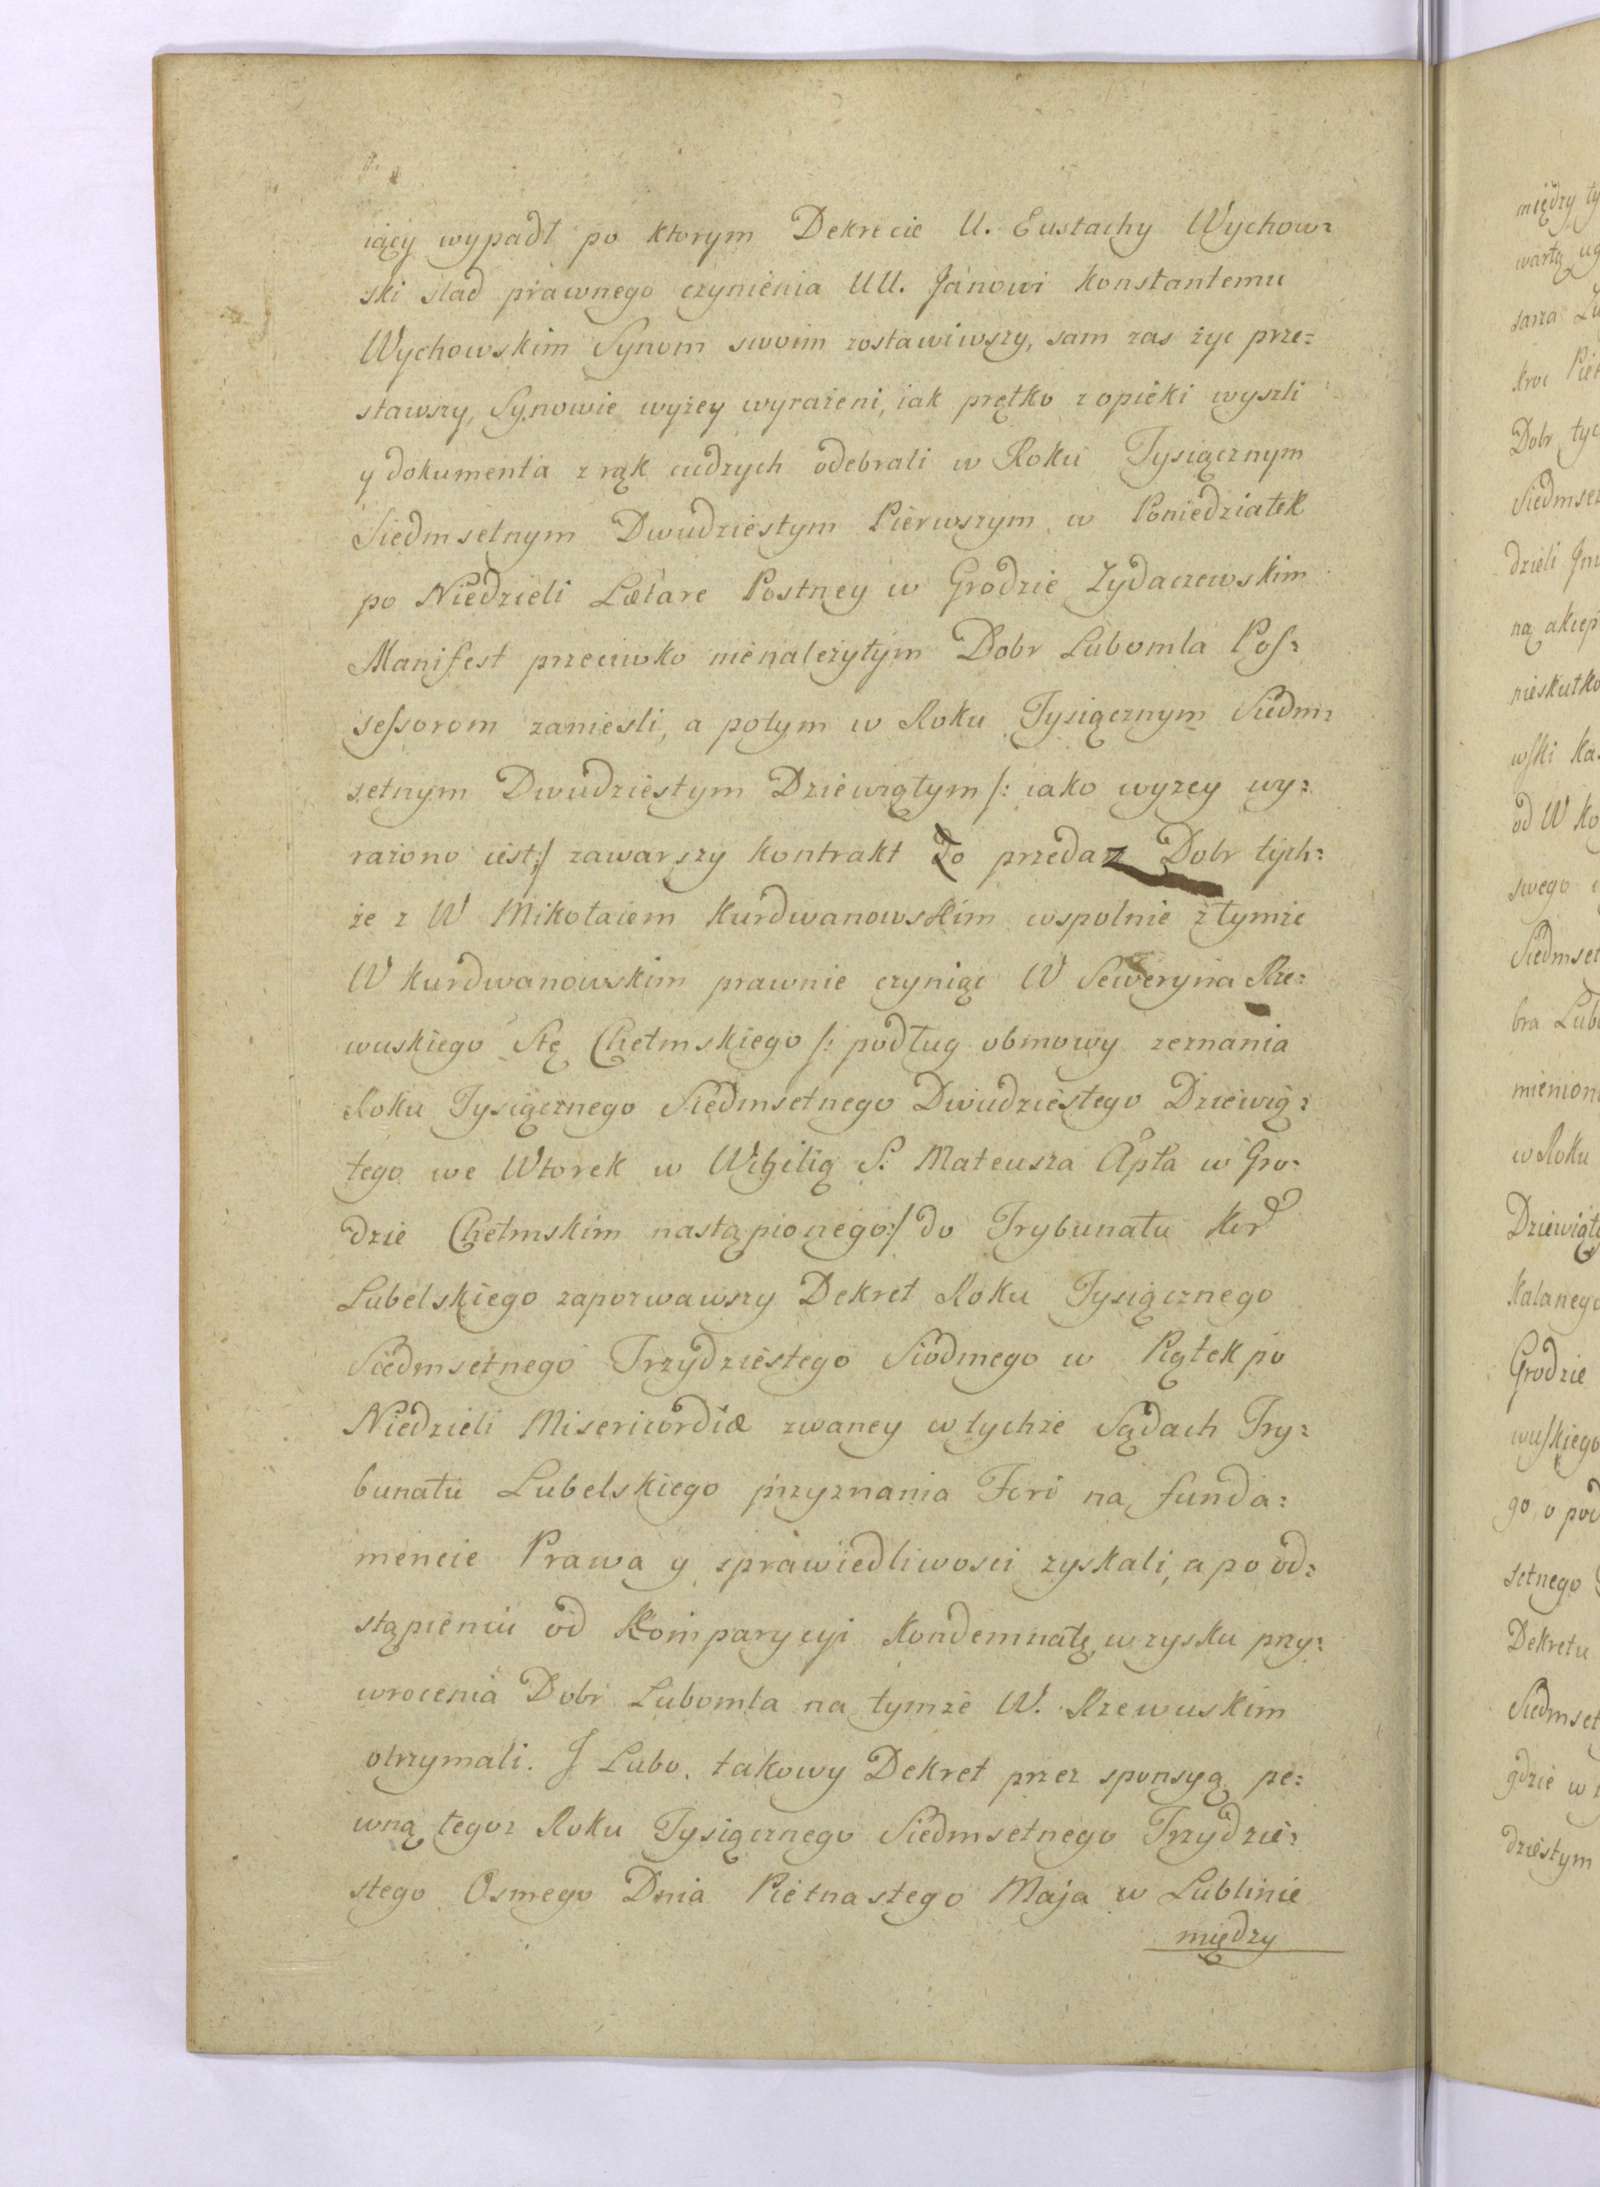 iący wypadł po ktorym Dekrecie U. Eustachy Wychow:
ski slad prawnego czynienia UU. Janowi Konstantemu
Wychowskim Synom swoim zostawiwszy, sam zas żyć prze:
stawszy, Synowie wyżey wyrażeni, iak prętko z opieki wyszli
y dokumenta z rąk cudzych odebrali w Roku Tysiącznym
Siedmsetnym Dwudziestym Pierwszym w Poniedziałek
po Niedzieli Lætare Postney w Grodzie Zydaczewskim
Manifest przeciwko nienależytym Dobr Lubomla Pos:
sessorom zaniesli, a potym w Roku Tysiącznym Siedm:
setnym Dwudziestym Dziewiątym /: iako wyzey wy:
rażono iest :/ zawarszy kontrakt do przedaz Dobr tych:
że z W Mikołaiem Kurdwanowskim wspolnie z tymże
W Kurdwanowskim prawnie czyniąc W Seweryna Rze:
wuskiego Stę Chełmskiego /: podług obmowy zeznania
Roku Tysiącznego Siedmsetnego Dwudziestego Dziewią:
tego we Wtorek w Wigilią S. Mateusza Apła w Gro:
dzie Chełmskim nastąpionego :/ do Trybunału Kor
Lubelskiego zaporwawszy Dekret Roku Tysiącznego
Siedmsetnego Trzydziestego Siodmego w Piątek po
Niedzieli Misericordiæ zwaney w tychże Sądach Try:
bunału Lubelskiego przyznania Fori na funda:
mencie Prawa y sprawiedliwosci zyskali, a po od:
stąpieniu od Komparycyi Kondemnatę w zysku przy:
wrocenia Dobr Lubomla na tymże W. Rzewuskim
otrzymali. J Lubo. takowy Dekret przez sponsyą pe:
wną tegoz Roku Tysiącznego Siedmsetnego Trzydzie:
stego Osmego Dnia Piętnastego Maja w Lublinie
między
między ty
wartą ug
sarza Lu
kroć Pię
Dobr tyc
Siedmset
dzieli Jm
ną akcep
nieskutko
wski Ka
od W Ko
swego
Siedmset
bra Lub
mienion
w Roku
Dziewiąty
Kalanego
Grodzie
wuskiego
go, o pod
setnego
Dekretu
Siedmset
gdzie w
dziestym